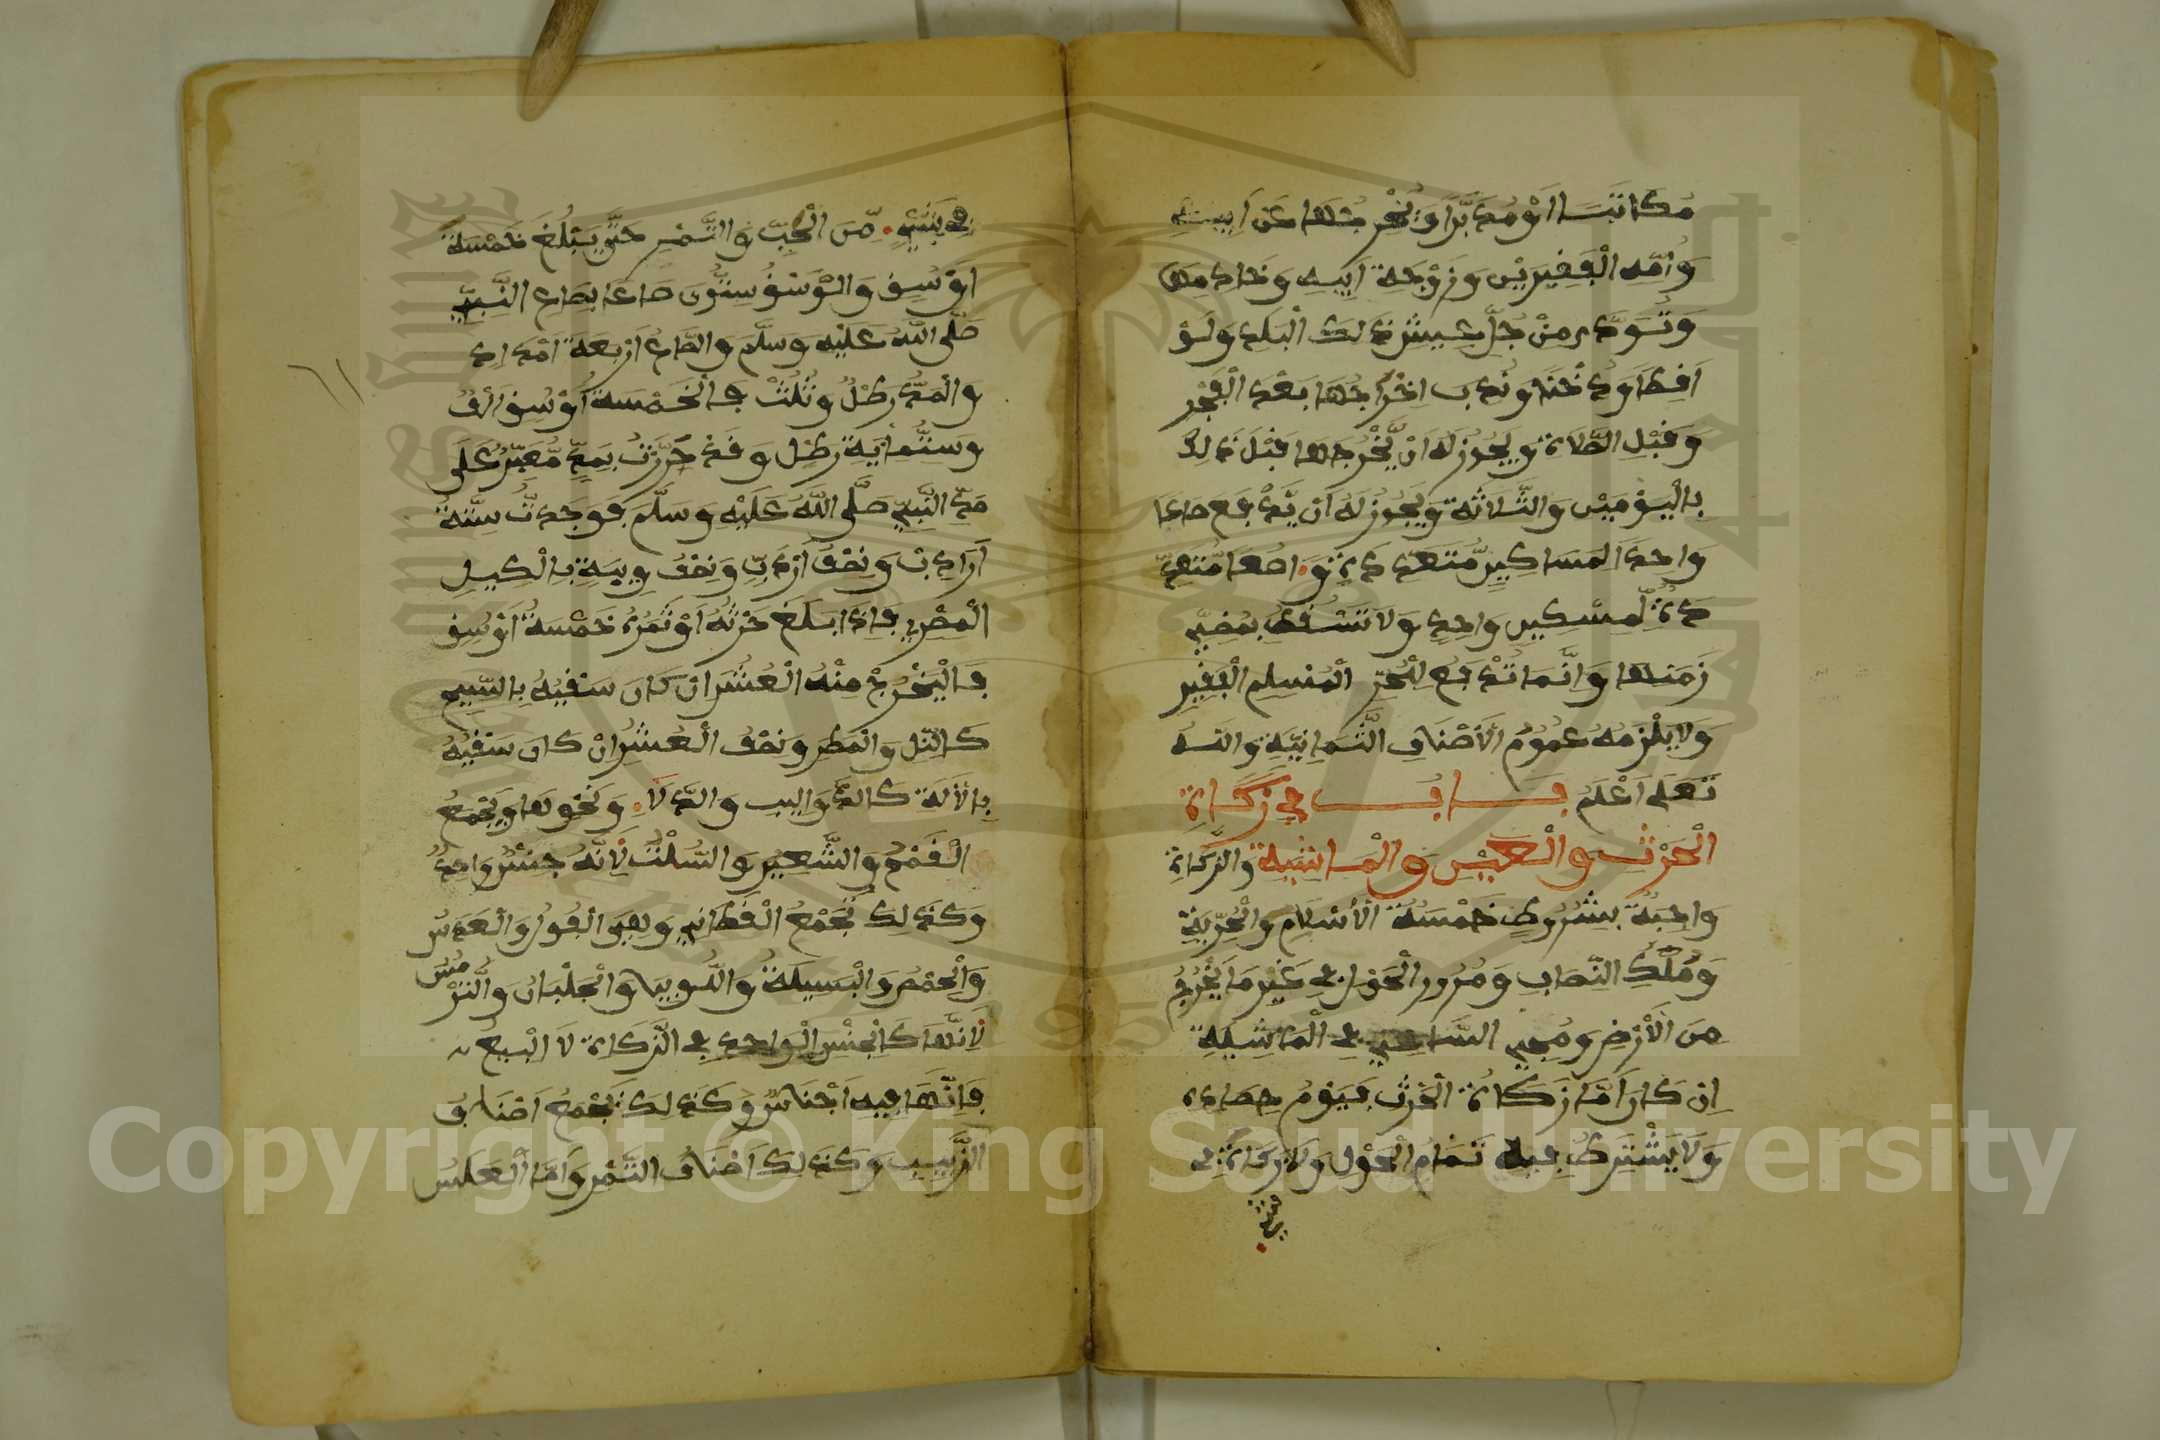 مُكَاتَبًا اَوْ مُدَبَّرًا وَيُخْرِجُهَا عَنْ اَبِيهِ
وَاُمِّهِ الْفَقِيرَيْنِ وَزَوْجَةِ اَبِيهِ وَخَادِمِهَا
وَتُوَدَّى مِنْ جُلِّ عَيْشِ ذَلِكَ الْبَلَدِ وَلَوْ
اَقِطًا وَدُخْنًا وَنُدِبَ اِخْرَاجُهَا بَعْدَ الْفَجْرِ
وَقَبْلِ الصَّلَاةِ وَيَجُوزُ لَهُ اَنْ يُّخْرِجَهَا قَبْلَ ذَلِكَ
بِالْيَوْمَيْنِ وَالثَّلَاثَةِ وَيَجُوزُ لَهُ اَنْ يَّدْفَعَ صَاعًا
وَاحِدًا لِمَسَاكِينَ مُّتَعَدِّدَةٍ وَاصُعًا مُّتَعَدِّ
دَةً لِّمِسْكِينٍ وَاحِدٍ وَلَا تَسْقُطُ بِمُضِيِّ
زَمَنِهَا وَاِنَّمَا تُدْفَعُ لِلْحُرِّ الْمُسْلِمِ الْفَقِيرِ
وَلَا يَلْزَمُهُ عُمُومُ الْأَصْنَافِ الثَّمَانِيَةِ وَاللَّهُ
تَعَلَى اَعْلَمُ بَابٌ فِي زَكَاةِ
الْحَرْثِ وَالْعَيْنِ وَالْمَاشِيَةِ وَالزَّكَاةُ
وَاجِبَةٌ بِشُرُوطٍ خَمْسَةٌ الْأسْلَامِ وَالْحُرِّيَةِ
وَمُلْكِ النِّصَابِ وَمُرُورِ الْحَوْلِ فِي غَيْرِ مَا يَخْرُجُ
مِنَ الْأَرْضِ وَمَجِيءِ السَّاعِي فِي الْمَاشِيَةِ
اِنْ كَانَ اَمَّا زَكَاةُ الْحَرْثِ فَيَوْمُ حِصَادِهِ
وَلَا يَشْتَرِكُ فِيهِ تَمَامُ الْحَوْلِ وَلَا زَكَاةَ فِي
فِي شَيْءٍ مِّنَ الْحَبِّ وَالتَّمْرِ حَتَّى يَبْلُغَ خَمْسَةَ
اَوْسُقٍ وَالْوَسْقُ سِتُّونَ صَاعًا بِصَاعِ النَّبِيِّ
صَلَّى اللَّهُ عَلَيْهِ وَسَلَّمَ وَالصَّاعُ اَرْبَعَةُ اَمْدَادٍ
وَالْمُدُّ رِطْلٌ وَثُلُثٌ فَالْخَمْسَةُ اَوْسُقٍ اَلْفُ
وَسِتُّمِائَةِ رِطْلٍ وَقَدْ حُرِّرَتْ بِمَدٍّ مُّعَيَّرٍ عَلَى
مُدِّ النَّبِيِّ صَلَّى اللَّهُ عَلَيْهِ وَسَلَّمَ فَوَجَدْتُّ سِتَّةَ
اَرَادِبَ وَنِصْفَ اَرْدَبٍّ وَنِصْفَ وِيبَةٍ بِالْكَيْلِ
الْمِصْرِيِّ فَاِذَا بَلَغَ حَرْثُهُ اَوْ تَمْرُهُ خَمْسَةَ اَوْسُقٍ
فَالْيَخْرُجْ مِنْهُ الْعُشْرَ اِنْ كَانَ سَقْيُهُ بِالسَّيْحِ
كَالنِّيلِ وَالْمَطَرِ وَنِصْفُ الْعُشُرِ اِنْ كَانَ سَقْيُهُ
بِالْآلَةِ كَالدَّوَالِيبِ وَالدِّلَاءِ وَنَحْوِهَا وَيُجْمَعُ
الْقَمْحُ وَالشَّعِيرُ وَالسُّلْتُ لَأَنَّهُ جِنْسٌ وَاحِدٌ
وَكَذَلِكَ تُجْمَعُ الْقَطَانِي وَهِيَ الْفُولُ وَالْعَدَسُ
وَالْحِمَّصُ وَالْبَسِيلَةُ وَاللُّوبِيَا وَالْجُلْبَانُ وَالتُّرْمُسُ
لَانَّهَا كَالْجِنْسِ الْوَاحِدِ فِي الزَّكَاةِ لَا الْبَيْعِ
فَاِنَّهَا فِيهِ اَجْنَاسٌ وَكَذَلِكَ تُجْمَعُ اَصْنَافُ
الزَّبِيبِ وَكَذَلِكَ اَصْنَافُ التَّمْرِ وَاَمَّا الْعَلَسُ
Copyright © King Saud University